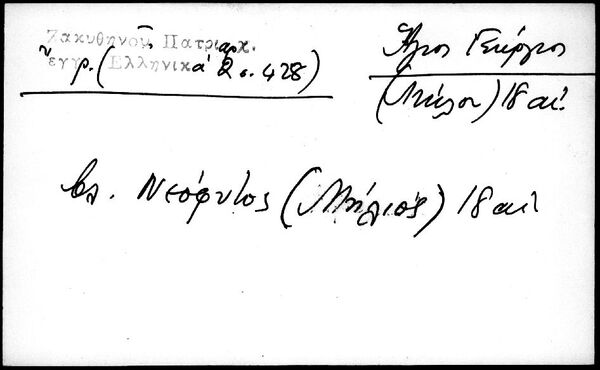 Ζακυθηνοῦ Πατριαρχ.
ἔγγρ. (Ἑλληνικά 2 σ. 428)
Ἅγιος Γεώργιος
(Μήλου) 18 αἰ.
βλ. Νεόφυτος (Μήλιος) 18 αἰ.